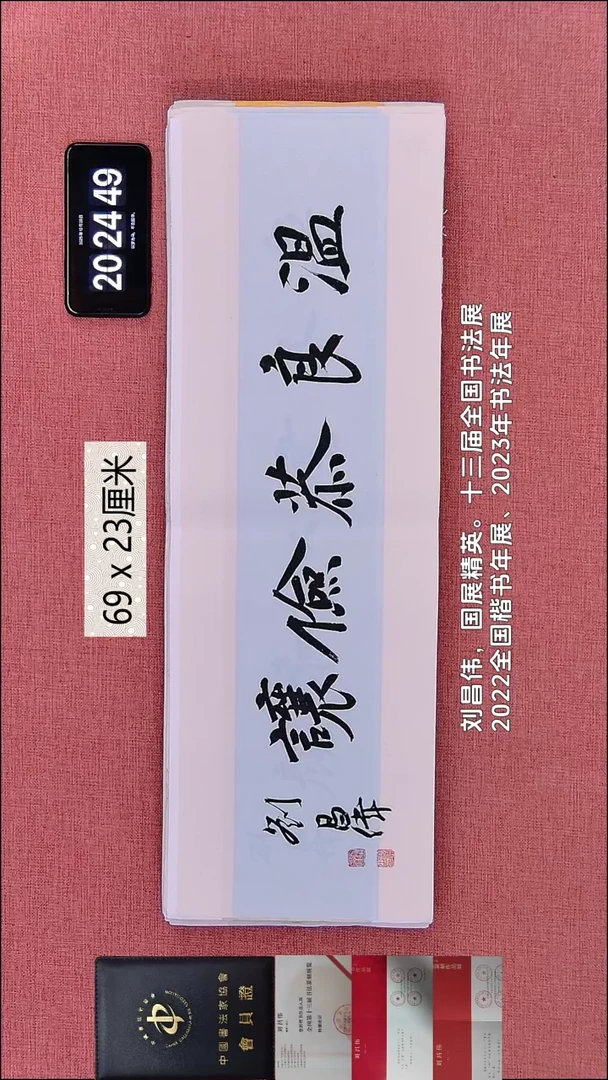 温良恭俭讓
劉昌偉
20 24 49
69 x 23厘米
刘昌伟，国展精英。十三届全国书法展
2022全国楷书年展、2023年书法年展
中國書法家協會
會員證